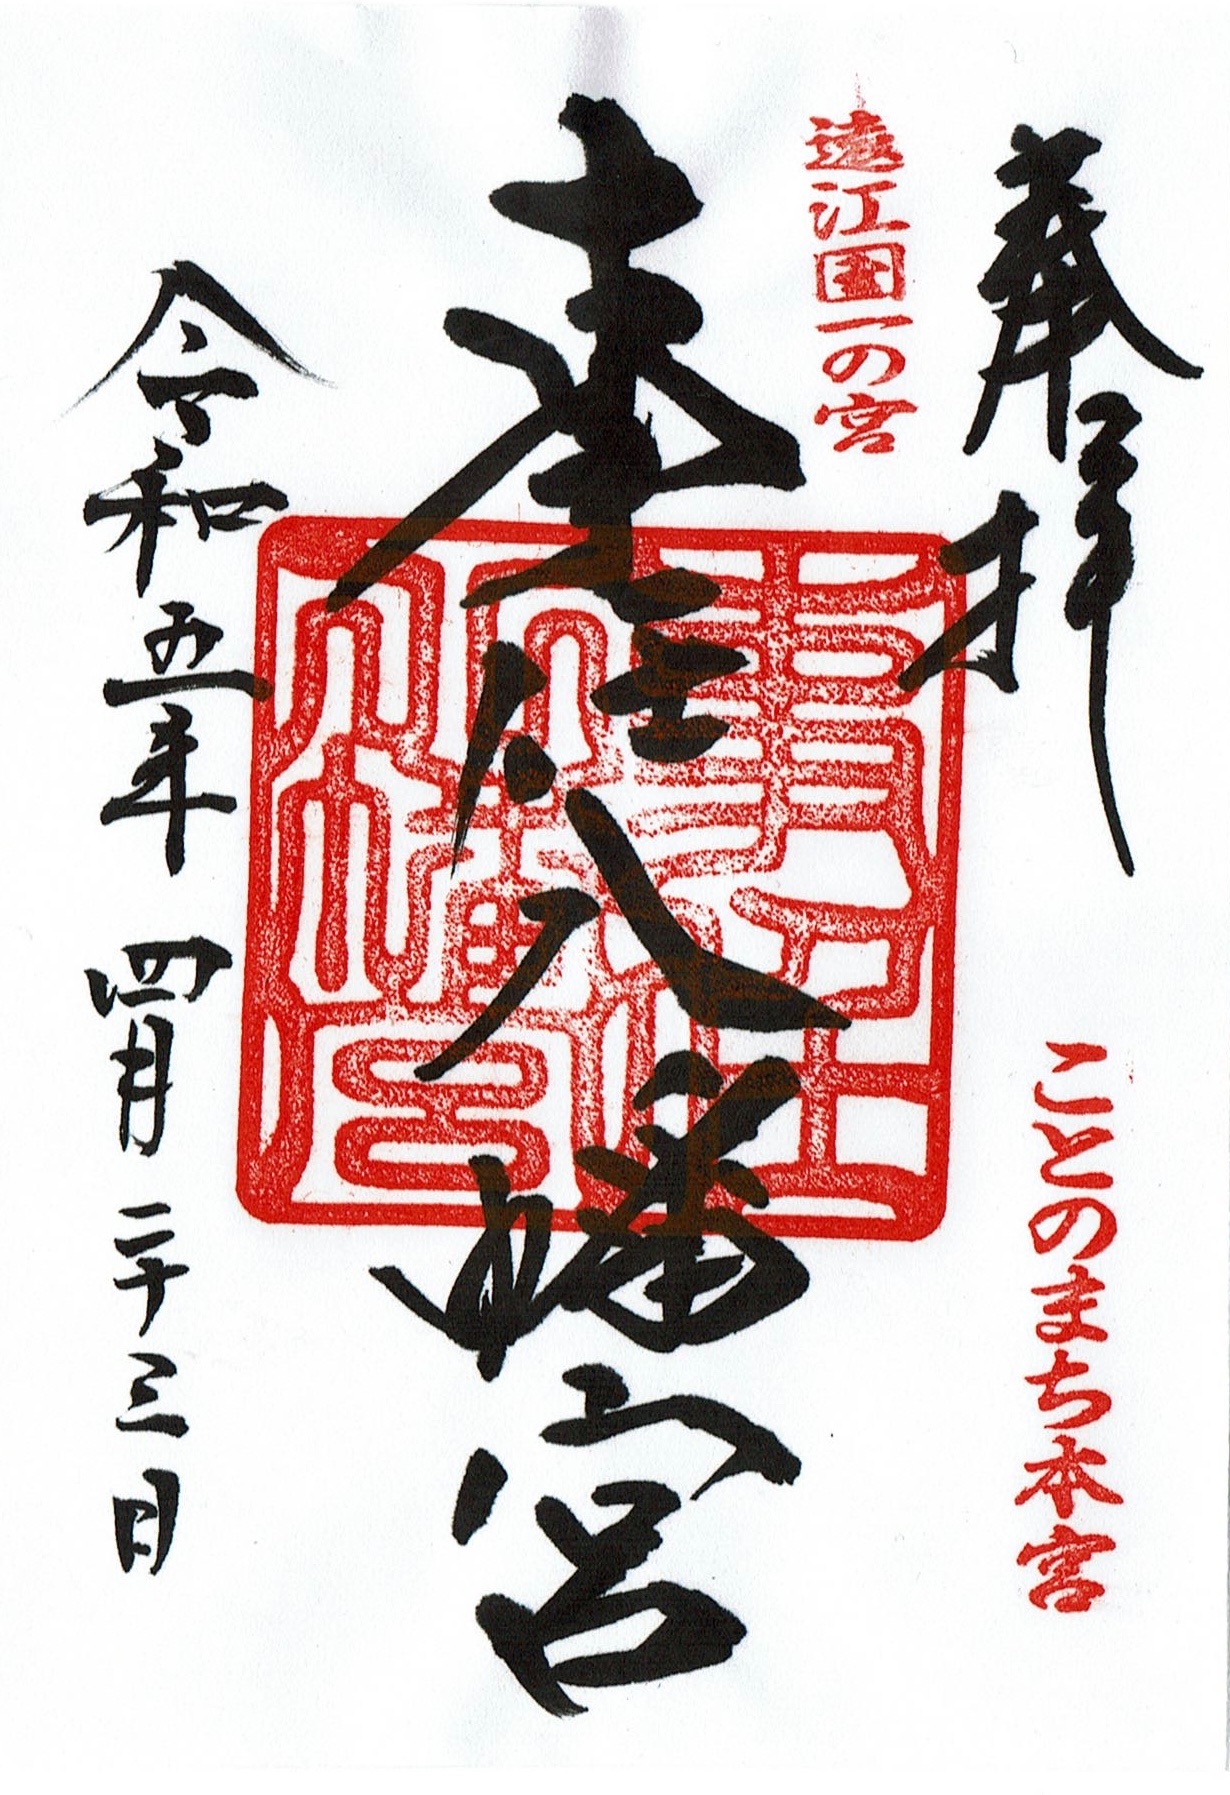 奉拝
ことのまち本宮
遠江国一の宮
事任八幡宮
事任八幡宮
令和五年 四月二十三日